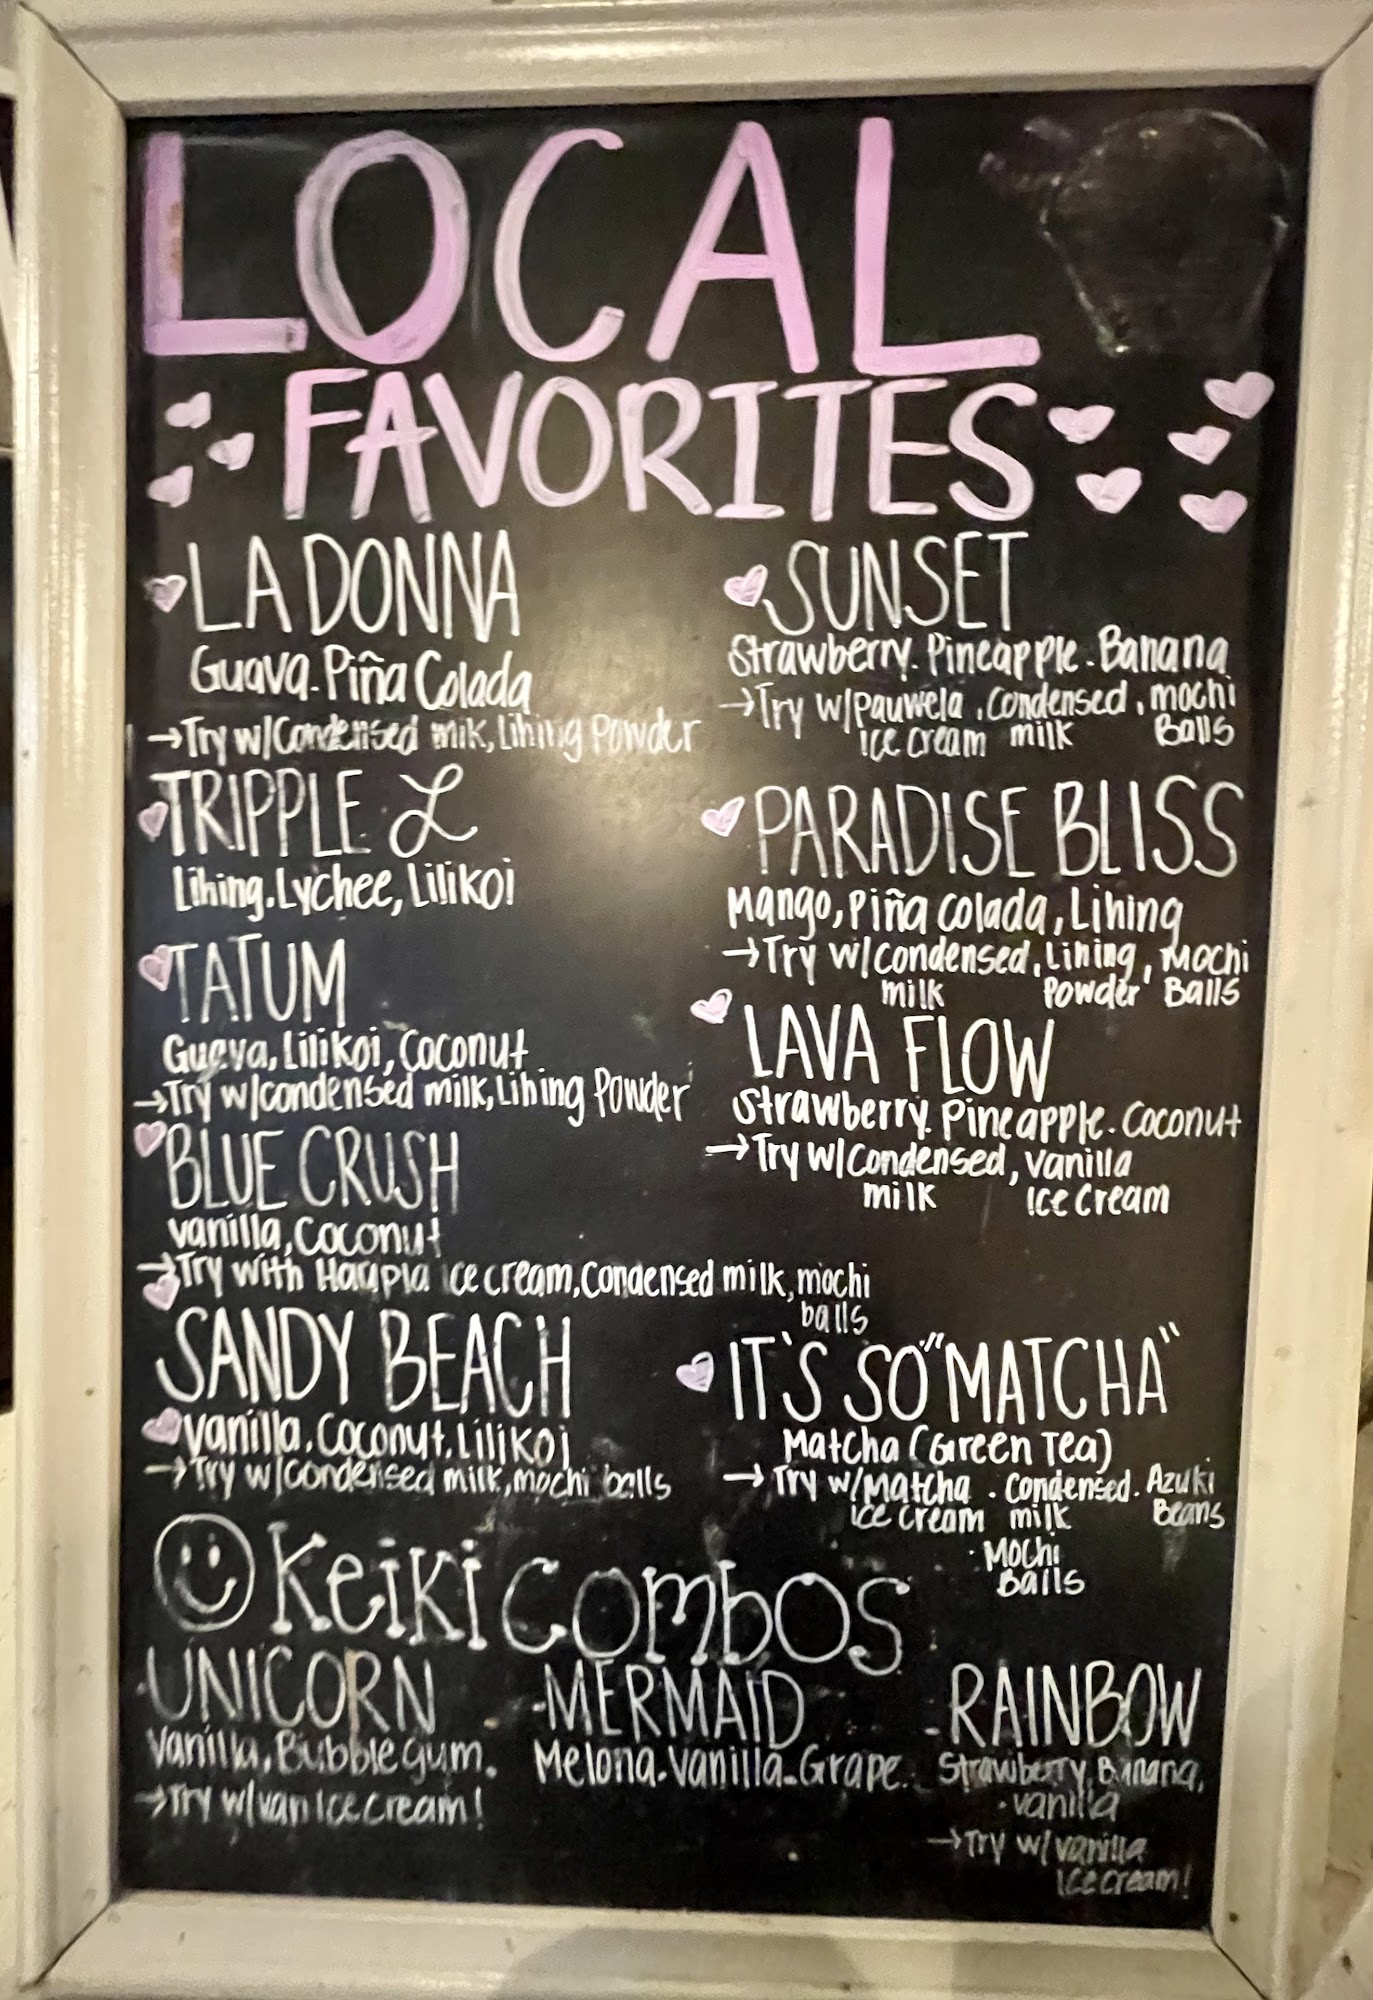 LOCAL
FAVORITES
LA DONNA
Guava. Piña Colada
→Try w/Condensed milk, Lihing Powder
TRIPPLE L
Lihing. Lychee, Lilikoi
TATUM
Guava, Lilikoi, Coconut
→Try w/condensed milk, Lihing Powder
BLUE CRUSH
vanilla, Coconut
→Try with Haupia Ice cream, Condensed milk, mochi
balls
SANDY BEACH
vanilla. Coconut. Lilikoi
→Try w/condensed milk, mochi balls
SUNSET
Strawberry. Pineapple. Banana
→Try w/Pauwela . Condensed . mochi
ice cream milk Balls
PARADISE BLISS
Mango, Piña colada, Lihing
→Try w/condensed, Lihing, Mochi
milk Powder Balls
LAVA FLOW
Strawberry. Pineapple. Coconut
→Try w/Condensed, vanilla
milk Ice cream
IT'S SO "MATCHA"
Matcha (Green Tea)
→Try w/Matcha . Condensed. Azuki
ice cream milk Beans
. Mochi
Balls
Keiki Combos
UNICORN
Vanilla, Bubble gum.
→Try w/van Ice cream!
-MERMAID
Melona. Vanilla. Grape
-RAINBOW
Strawberry, Banana,
. vanilla
→Try w/vanilla
Ice cream!